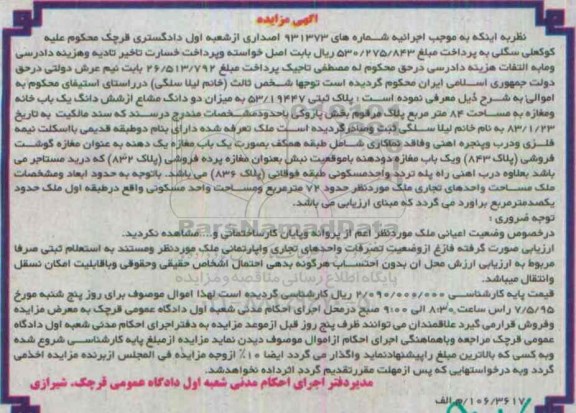 آگهی مزایده
نظربه اینکه به موجب اجرائیه شماره های ۹۳۱۳۷۳ اصداری ازشعبه اول دادگستری قرچک محکوم علیه
کوکعلی سگلی به پرداخت مبلغ ۵۳۰/۲۷۵/۸۴۳ ریال بابت اصل خواسته وپرداخت خسارت تاخیر تادیه وهزینه دادرسی
ومابه التفات هزینه دادرسی درحق محکوم له مصطفی تاجیک پرداخت مبلغ ۲۶/۵۱۳/۷۹۲ بابت نیم عرش دولتی درحق
دولت جمهوری اسلامی ایران محکوم گردیده است توجها شخص ثالث (خانم لیلا سلگی) درراستای استیفای محکوم به
اموالی به شرح ذیل معرفی نموده است : پلاک ثبتی ۵۳/۱۹۴۴۷ به میزان دو دانگ مشاع ازشش دانگ یک باب خانه
ومغازه به مساحت ۸۴ متر مربع پلاک مرقوم بخش باحدودمشخصات مندرج درسند که سند مالکیت به تاریخ
۸۳/۱/۲۳ به نام خانم لیلا سلگی ثبت وصادرگردیده است ملک تعرفه شده دارای بنام دوطبقه قدیمی بااسکلت نیمه
فلزی ودرب وپنجره اهنی وفاقد شامل طبقه همکف بصورت یک باب مغازه یک دهنه به عنوان مغازه گوشت
فروشی (پلاک ۸۴۳) ویک باب مغازه دودهنه باموقعیت نبش بعنوان مغازه پرده فروشی (پلاک ۸۳۲) که درید مستاجر می
باشد بعلاوه درب اهنی راه پله تردد واحدمسکونی طبقه فوقانی (پلاک ۸۳۶) می باشد. باتوجه به حدود ابعاد ومشخصات
ملک مساحت واحدهای تجاری ملک موردنظر حدود ۷۲ مترمربع ومساحت واحد مسکونی واقع درطبقه اول ملک حدود
یکصدمترمربع براورد می گردد که مبنای ارزیابی می باشد.
توجه ضروری :
درخصوص وضعیت اعیانی ملک موردنظر اعم از پروانه وپایان کارساختمانی و... مشاهده نکردید.
ارزیابی صورت گرفته فارغ ازوضعیت تصرفات واحدهای تجاری واپارتمانی ملک موردنظر ومستند به استعلام ثبتی صرفا
مربوط به ارزیابی ارزش محل ان بدون احتساب هرگونه بدهی احتمال اشخاص حقیقی وحقوقی وباقابلیت امکان نسقل
وانتقال میباشد.
قیمت پایه کارشناسی ۲/۰۹۰/۰۰۰/۰۰۰ ریال کارشناسی گردیده است لهذا اموال موصوف برای روز پنج شنبه مورخ
۷/۵/۹۵ راس ساعت ۸:۳۰ الی ۹:۰۰ صبح درمحل اجرای احکام مدنی شعبه اول دادگاه عمومی قرچک به معرض مزایده
وفروش قرارمی گیرد علاقمندان می توانند ظرف پنج روز قبل ازموعد مزایده به دفتراجرای احکام مدنی شعبه اول دادگاه
عمومی قرچک مراجعه وباهماهنگی اجرای احکام ازاموال موصوف دیدن نماید مزایده ازمبلغ پایه کارشناسی شروع شده
وبه کسی که بالاترین مبلغ راپیشنهادنماید واگذار می گردد ایضا ۱۰٪ ازوجه مزایده فی المجلس ازبرنده مزایده اخذمی
گردد وبه درخواستهایی که پس ازمهلت مقررتقدیم گردد اثرداده نخواهدشد.
مدیردفتر اجرای احکام مدنی شعبه اول دادگاه عمومی قرچک. شیرازی
۱۰۶/۳۶۱۷/م الف
ParsNamadData
پایگاه اطلاع رسانی مناقصه و مزایده